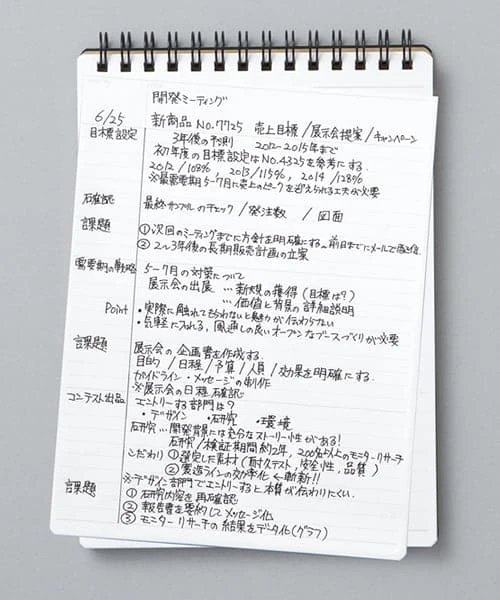 開発ミーティング
6/25 新商品 No.7725 売上目標/展示会提案/キャンペーン
目標設定 3年後の予測 2012-2015年まで
初年度の目標設定はNo.4325を参考にする.
2012/108% 2013/115%, 2014/128%
※最需要期5-7月に売上のピークを迎えられる工夫が必要
確認 最終サンプルのチェック/発注数 / 図面
課題 ①次回のミーティングまでに方針を明確にする。前日までにメールで
②2~3年後の長期販売計画の立案
需要期の戦略 5-7月の対策について
展示会の出展 … 新規の獲得(目標は?)
… 価値と背景の詳細説明
Point ・実際に触れてもらわないと魅力が伝わらない
・気軽に入れる, 風通しの良いオープンなブースづくりが必要
課題 展示会の企画書を作成する.
目的/日程/予算/人員/効果を明確にする.
ガイドライン・メッセージの制作
※展示会の日程確認
コンテスト出品 エントリーする部門は?
・デザイン ・研究 ・環境
研究…開発背景には充分なストーリー性がある!
研究/検証期間約2年, 200名以上のモニターリサーチ
こだわり ①選定した素材(耐久テスト,安全性,品質)
②製造ラインの効率化 ←斬新!!
※デザイン部門でエントリーすると本質が伝わりにくい.
課題 ①研究内容を再確認
②報告書を要約してメッセージ化
③モニターリサーチの結果をデータ化(グラフ)